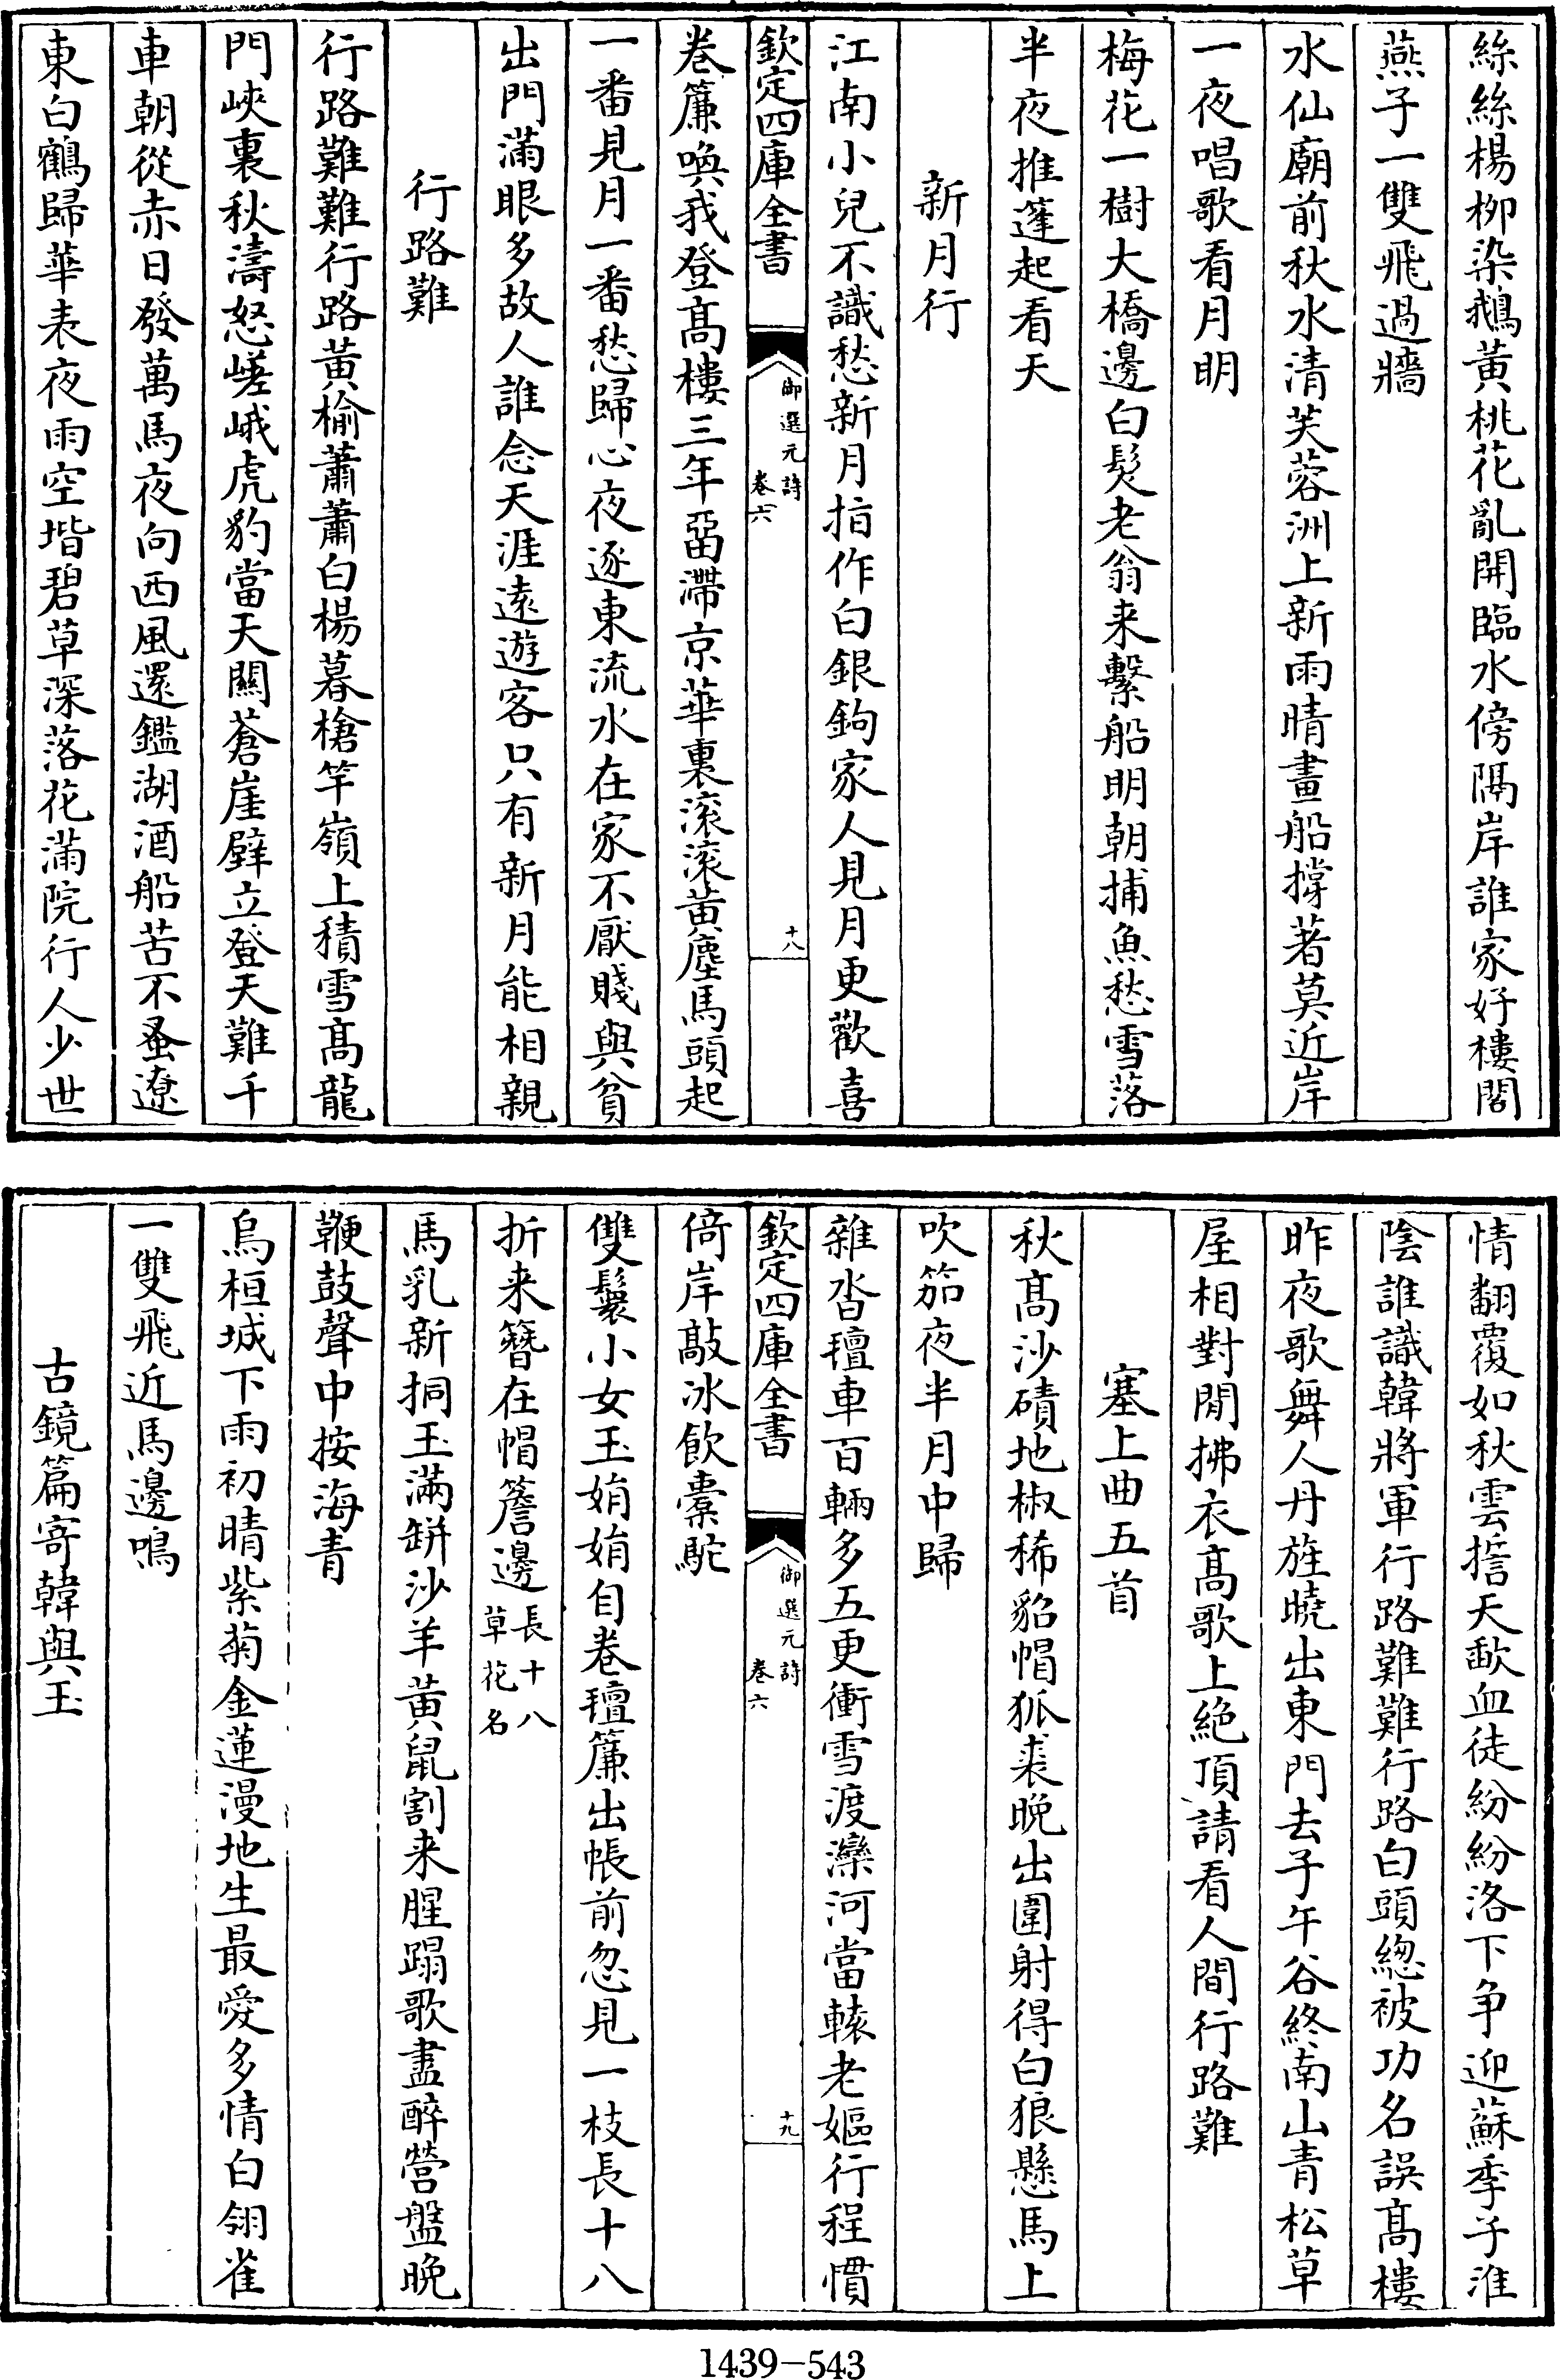 絲絲楊栁染鵝黄桃花亂開臨水傍隔岸誰家好樓閣
燕子一雙飛過牆
水仙廟前秋水清芙蓉洲上新雨晴畫船撐著莫近岸
一夜唱歌看月明
梅花一樹大橋邊白髮老翁来繫船明朝捕魚愁雪落
半夜推篷起看天
新月行
江南小兒不識愁新月指作白銀鉤家人見月更歡喜
欽定四庫全書
御選元詩
卷六
十八
卷簾喚我登髙樓三年畱滯京華裏滚滚黄塵馬頭起
一番見月一番愁歸心夜逐東流水在家不厭賤與貧
出門滿眼多故人誰念天涯逺遊客只有新月能相親
行路難
行路難難行路黄榆蕭蕭白楊暮槍竿嶺上積雪髙龍
門峽裏秋濤怒嵯峨虎豹當天關蒼崖壁立登天難千
車朝從赤日發萬馬夜向西風還鑑湖酒船苦不蚤遼
東白鶴歸華表夜雨空堦碧草深落花滿院行人少世
情翻覆如秋雲誓天歃血徒紛紛洛下争迎蘇季子淮
陰誰識韓將軍行路難難行路白頭總被功名誤髙樓
昨夜歌舞人丹旌曉出東門去子午谷終南山青松草
屋相對閒拂衣髙歌上絶頂請看人間行路難
塞上曲五首
秋髙沙磧地椒稀貂帽狐裘晚出圍射得白狼懸馬上
吹笳夜半月中歸
雜沓氊車百輛多五更衝雪渡灤河當轅老嫗行程慣
欽定四庫全書
御選元詩
卷六
十九
倚岸敲冰飲槖駝
雙鬟小女玉娟娟自卷氊簾出帳前忽見一枝長十八
折来簪在帽簷邊長十八草花名
馬乳新挏玉滿缾沙羊黄鼠割来腥踢歌盡醉營盤晚
鞭鼓聲中按海青
烏桓城下雨初晴紫菊金蓮漫地生最愛多情白翎雀
一雙飛近馬邊鳴
古鏡篇寄韓與玉
1439-543